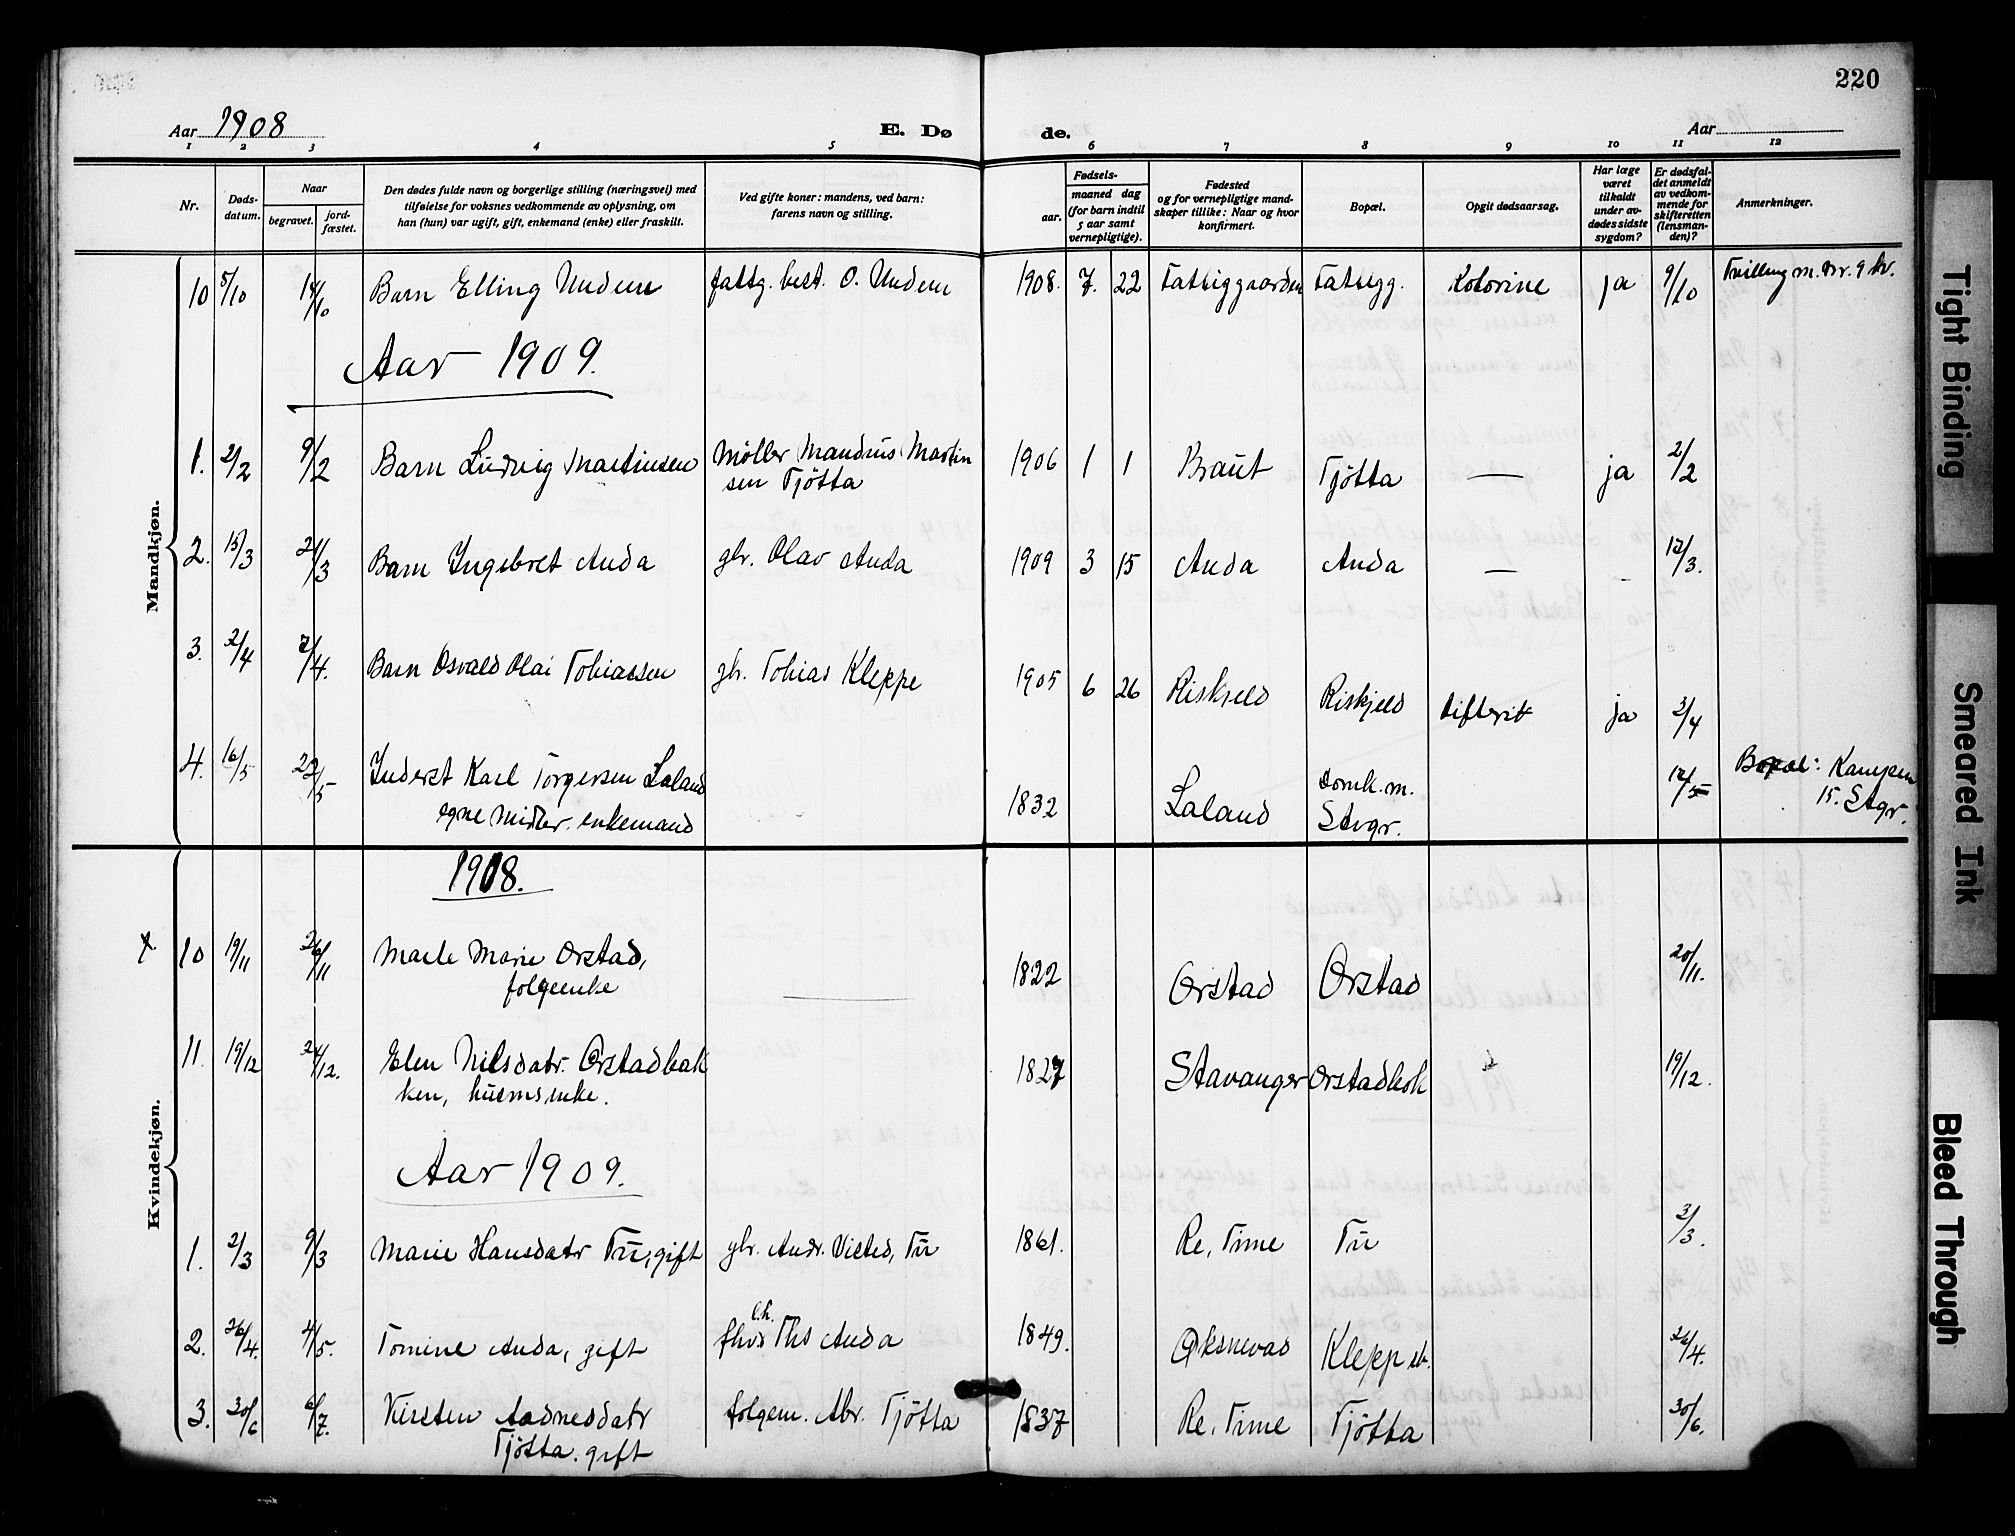 220
Aar 1908 E. Dø de. Aar
1 2 3 4 5 6 7 8 9 10 11 12
Nr. Døds-datum. Naar begravet. jord-fæstet. Den dødes fulde navn og borgerlige stilling (næringsvei) med tilføielse for voksnes vedkommende av oplysning, om han (hun) var ugift, gift, enkemand (enke) eller fraskilt. Ved gifte koner: mandens, ved barn: farens navn og stilling. Fødsels- aar. maaned dag (for barn indtil 5 aar samt vernepligtige). Fødested og for vernepligtige mandskaper tillike: Naar og hvor konfirmert. Bopæl. Opgit dødsaarsag. Har læge været tilkaldt under avdødes sidste sygdom? Er dødsfaldet anmeldt av vedkommende for skifteretten (lensmanden)? Anmerkninger.
Mandkjøn.
10 5/10 14/10 Barn Elling Undem fattg. best. O. Undem 1908. 7. 22 Fattiggaarden Fattigg. Kolorine ja 9/10 Tvilling m. nr. 9 kv.
Aar 1909.
1. 2/2 9/2 Barn Ludvig Martinsen Møller Mandrus Martin 1906 1 1 Braut Tjøtta — ja 2/2
sen Tjøtta
2. 15/3 21/3 Barn Ingebret Anda gbr. Olav Anda 1909 3 15 Anda Anda — - 17/3.
3. 2/4 7/4. Barn Osvald Olai Tobiassen gbr. Tobias Kleppe 1905 6 26 Riskjeld Riskjeld difterit ja 3/4
4. 16/5 22/5 Inderst Karl Torgersen Laland 1832 Laland domk. m. 17/5 Bopæl: Kampen
egne midler. enkemand Stvgr. 15. Stgr.
Kvindekjøn.
1908.
x. 10 19/11 26/11 Marte Marie Orstad, 1822 Orstad Orstad 20/11.
folgeenke
11. 19/12 24/12. Elen Nilsdatr. Orstadbak 1827 Stavanger Orstadbak 19/12.
ken, husmsenke.
Aar 1909.
1. 2/3 9/3 Marie Hansdatr Tu, gift gbr. Andr. Visted, Tu 1861. Re, Time Tu 3/3.
2. 26/4. 4/5. Tomine Anda, gift fhvd. Ths Anda 1849. Øksnevad Klepp st. 26/4.
3. 30/6 6/7. Kirsten Aadnesdatr folgem. Abr. Tjøtta 1837 Re. Time Tjøtta 30/6.
Tjøtta. gift
Tight Binding
Smeared Ink
Bleed Through